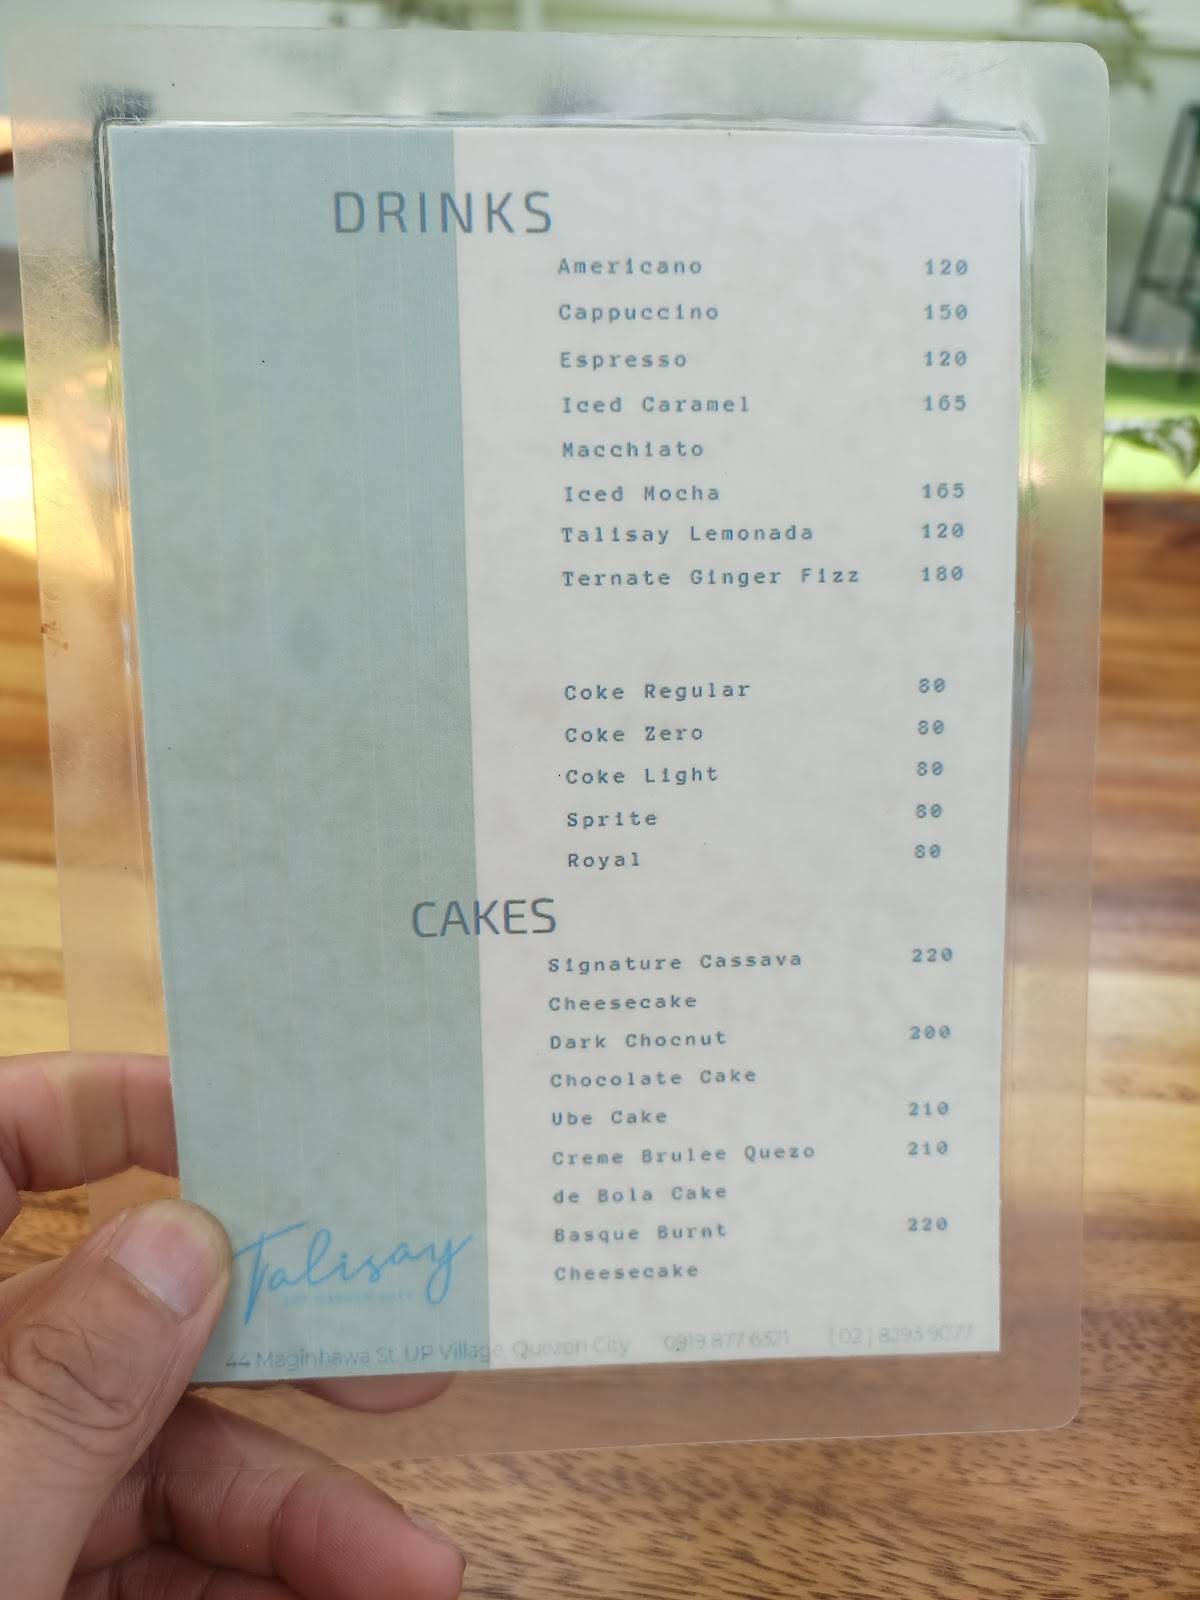 DRINKS
Americano 120
Cappuccino 150
Espresso 120
Iced Caramel 165
Macchiato
Iced Mocha 165
Talisay Lemonada 120
Ternate Ginger Fizz 180
Coke Regular 80
Coke Zero 80
Coke Light 80
Sprite 80
Royal 80
CAKES
Signature Cassava 220
Cheesecake
Dark Chocnut 200
Chocolate Cake
Ube Cake 210
Creme Brulee Quezo 210
de Bola Cake
Basque Burnt 220
Cheesecake
Talisay
44 Maginhawa St. UP Village, Quezon City 0919 877 6321 (02) 8293 9077